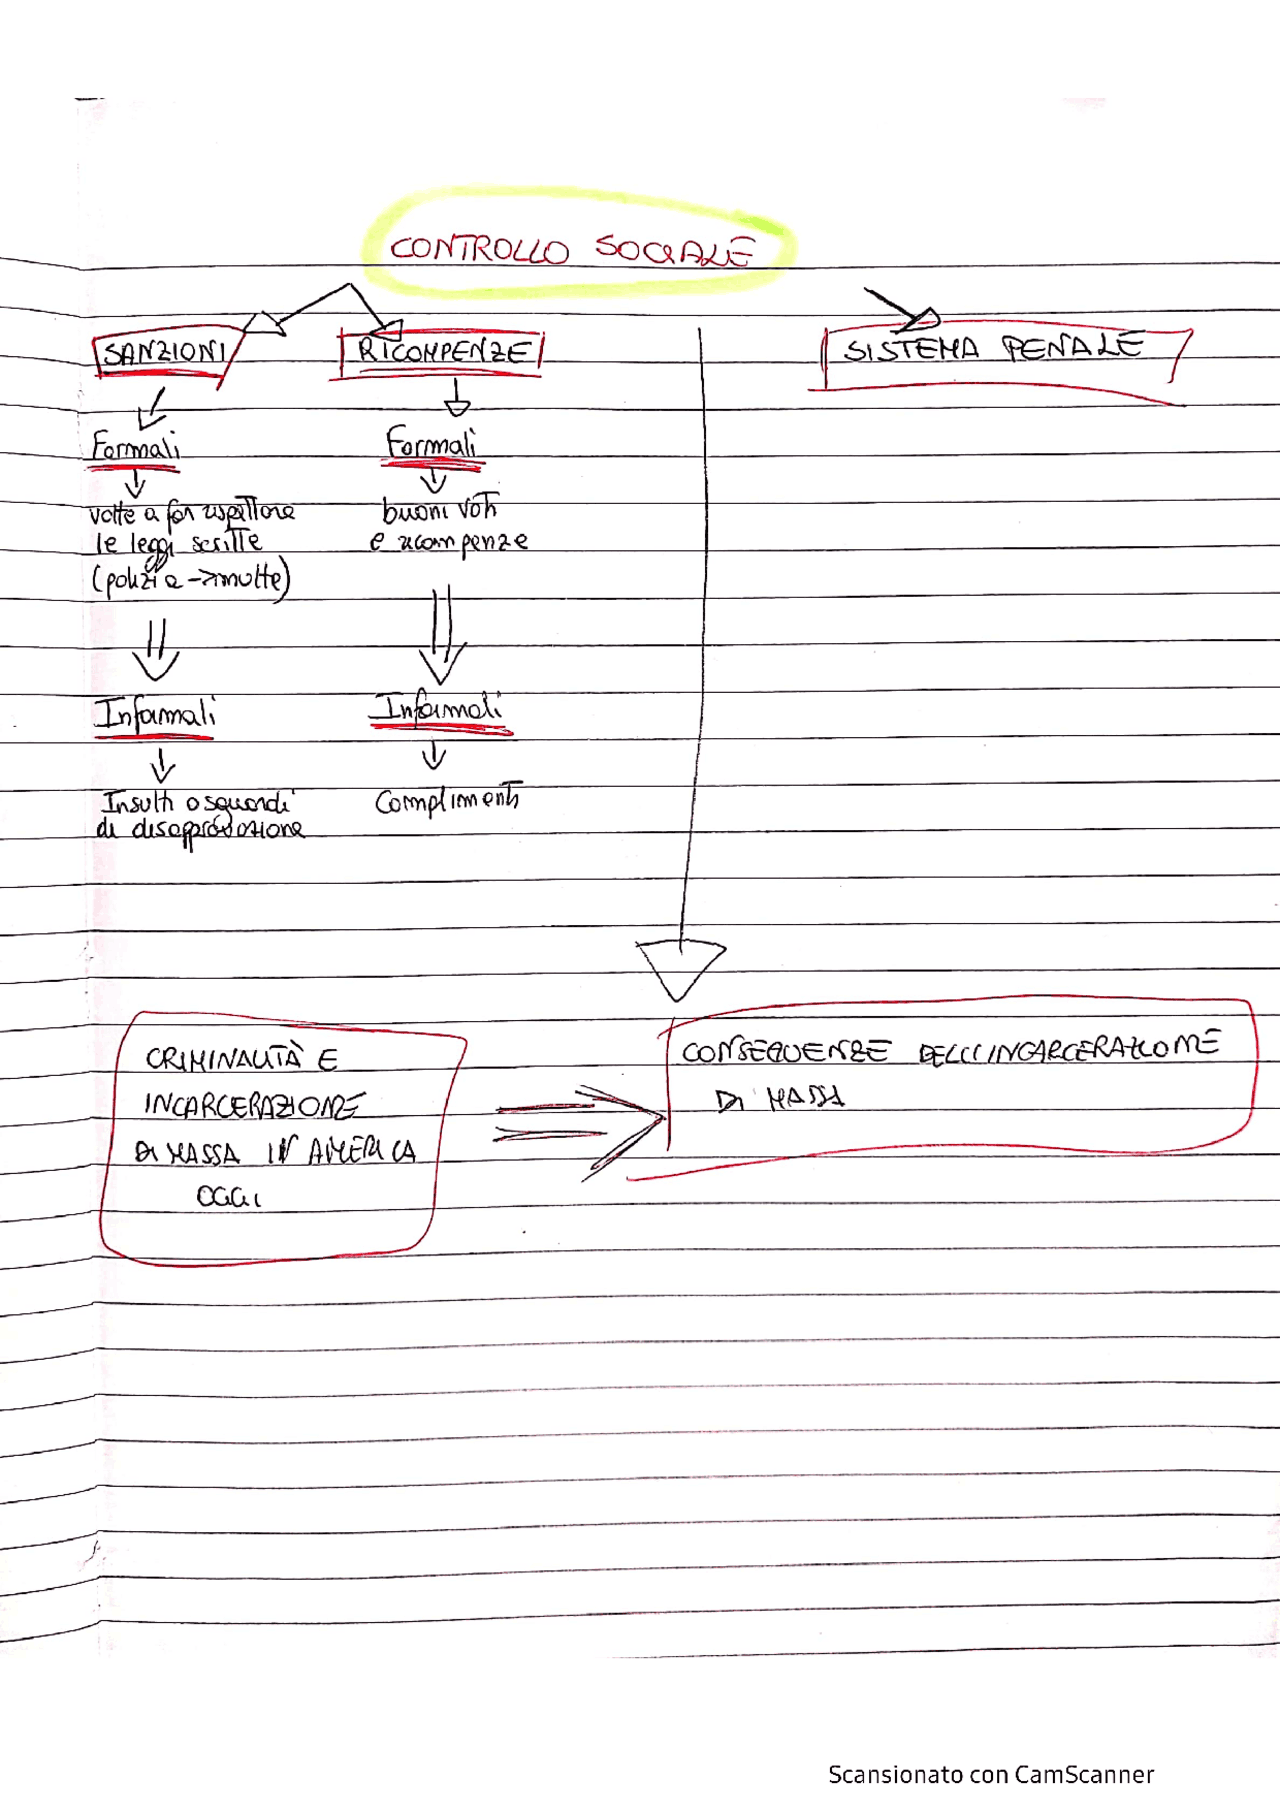 CONTROLLO SOCIALE
SANZIONI
RICOMPENZE
SISTEMA PENALE
Formali
Formali
volte a far rispettare
le leggi scritte
(polizia->multe)
buoni voti
e ricompenze
Informali
Informali
Insulti o sguardi
di disapprovazione
Complimenti
CRIMINALITÀ E
INCARCERAZIONE
DI MASSA IN AMERICA
OGGI
CONSEGUENZE DELL'INCARCERAZIONE
DI MASSA
Scansionato con CamScanner